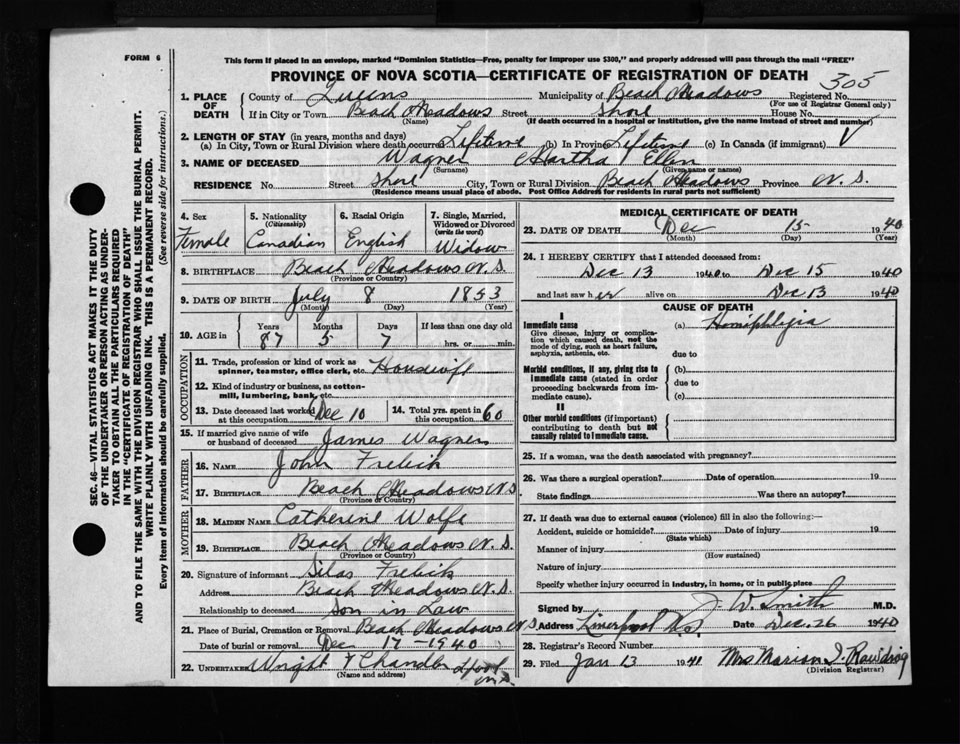 FORM 6
This form if placed in an envelope, marked "Dominion Statistics—Free, penalty for improper use $300," and properly addressed will pass through the mail "FREE"
PROVINCE OF NOVA SCOTIA—CERTIFICATE OF REGISTRATION OF DEATH
305
1. PLACE OF DEATH
County of Queens Municipality of Beach Meadows Registered No.
(For use of Registrar General only)
If in City or Town Beach Meadows Street Shore House No.
(Name) (If death occurred in a hospital or institution, give the name instead of street and number)
2. LENGTH OF STAY (in years, months and days)
(a) In City, Town or Rural Division where death occurred Lifetime (b) In Province Lifetime (c) In Canada (if immigrant)
3. NAME OF DECEASED Wagner Martha Ellen
(Surname) (Given name or names)
RESIDENCE No. Street Shore City, Town or Rural Division Beach Meadows Province N. S.
(Residence means usual place of abode. Post Office Address for residents in rural parts not sufficient)
4. Sex 5. Nationality (Citizenship) 6. Racial Origin 7. Single, Married, Widowed or Divorced (write the word)
Female Canadian English Widow
8. BIRTHPLACE Beach Meadows N. S.
(Province or Country)
9. DATE OF BIRTH July 8 1853
(Month) (Day) (Year)
10. AGE in Years Months Days If less than one day old
87 5 7 hrs. or min.
OCCUPATION
11. Trade, profession or kind of work as spinner, teamster, office clerk, etc. Housewife
12. Kind of industry or business, as cotton-mill, lumbering, bank, etc.
13. Date deceased last worked at this occupation Dec 10 14. Total yrs. spent in this occupation 60
15. If married give name of wife or husband of deceased James Wagner
FATHER
16. NAME John Frelick
17. BIRTHPLACE Beach Meadows N S
(Province or Country)
MOTHER
18. MAIDEN NAME Catherine Wolfe
19. BIRTHPLACE Beach Meadows N. S.
(Province or Country)
20. Signature of informant Silas Frelick
Address Beach Meadows N. S.
Relationship to deceased Son in Law
21. Place of Burial, Cremation or Removal Beach Meadows N S
Date of burial or removal Dec 17-1940
22. UNDERTAKER Wright & Chandler L'pool N.S.
(Name and address)
MEDICAL CERTIFICATE OF DEATH
23. DATE OF DEATH Dec 15 1940
(Month) (Day) (Year)
24. I HEREBY CERTIFY that I attended deceased from:
Dec 13 1940 to Dec 15 1940
and last saw her alive on Dec 13 1940
CAUSE OF DEATH
I
Immediate cause (a) Hemiphlegia
Give disease, injury or complication which caused death, not the mode of dying, such as heart failure, asphyxia, asthenia, etc.
due to
Morbid conditions, if any, giving rise to immediate cause (stated in order proceeding backwards from immediate cause).
(b)
due to
(c)
II
Other morbid conditions (if important) contributing to death but not causally related to immediate cause.
25. If a woman, was the death associated with pregnancy?
26. Was there a surgical operation? Date of operation 19
State findings Was there an autopsy?
27. If death was due to external causes (violence) fill in also the following:—
Accident, suicide or homicide? Date of injury 19
(State which)
Manner of injury
(How sustained)
Nature of injury
Specify whether injury occurred in industry, in home, or in public place
Signed by J. W. Smith M.D.
Address Liverpool N.S. Date Dec. 26 1940
28. Registrar's Record Number
29. Filed Jan 13 1941 Mrs Marion I.
(Division Registrar)
SEC. 46—VITAL STATISTICS ACT MAKES IT THE DUTY
OF THE UNDERTAKER OR PERSON ACTING AS UNDER-
TAKER TO OBTAIN ALL THE PARTICULARS REQUIRED
IN THE "CERTIFICATE OF REGISTRATION OF DEATH"
AND TO FILE THE SAME WITH THE DIVISION REGISTRAR WHO SHALL ISSUE THE BURIAL PERMIT.
WRITE PLAINLY WITH UNFADING INK. THIS IS A PERMANENT RECORD.
Every item of information should be carefully supplied. (See reverse side for instructions.)